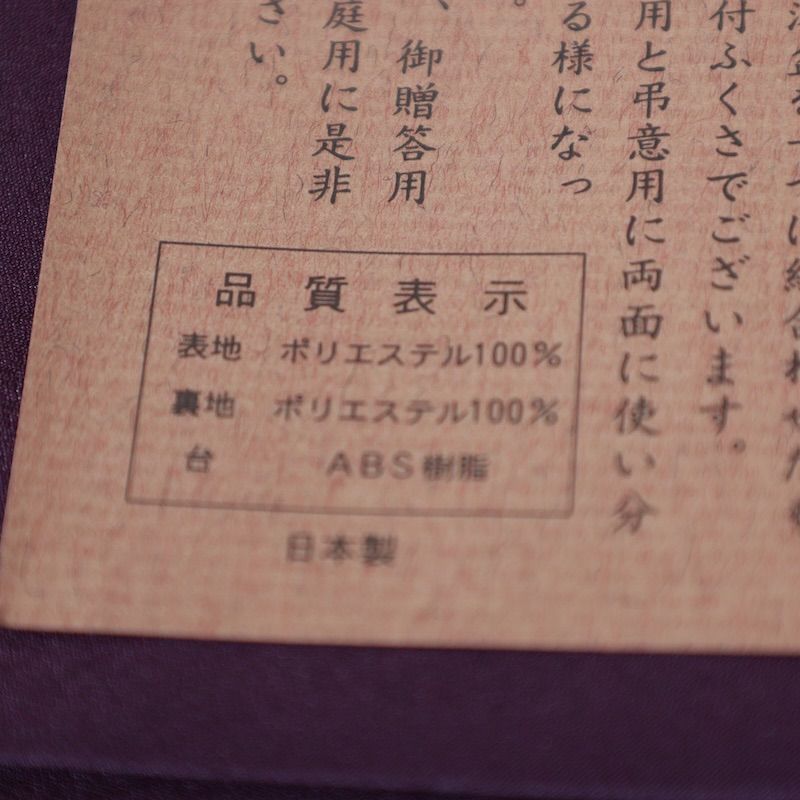 付ふくさでございます。
用と弔意用に両面に使い分
る様になっ
。
、御贈答用
庭用に是非
さい。
品質表示
表地 ポリエステル100%
裏地 ポリエステル100%
台 ABS樹脂
日本製